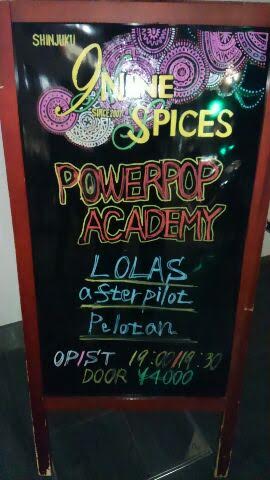 SHINJUKU
NINE
SINCE 2007
SPICES
POWERPOP
ACADEMY
LOLAS
afterpilot
Pelotan
OP/ST 19:00/19:30
DOOR ¥4000